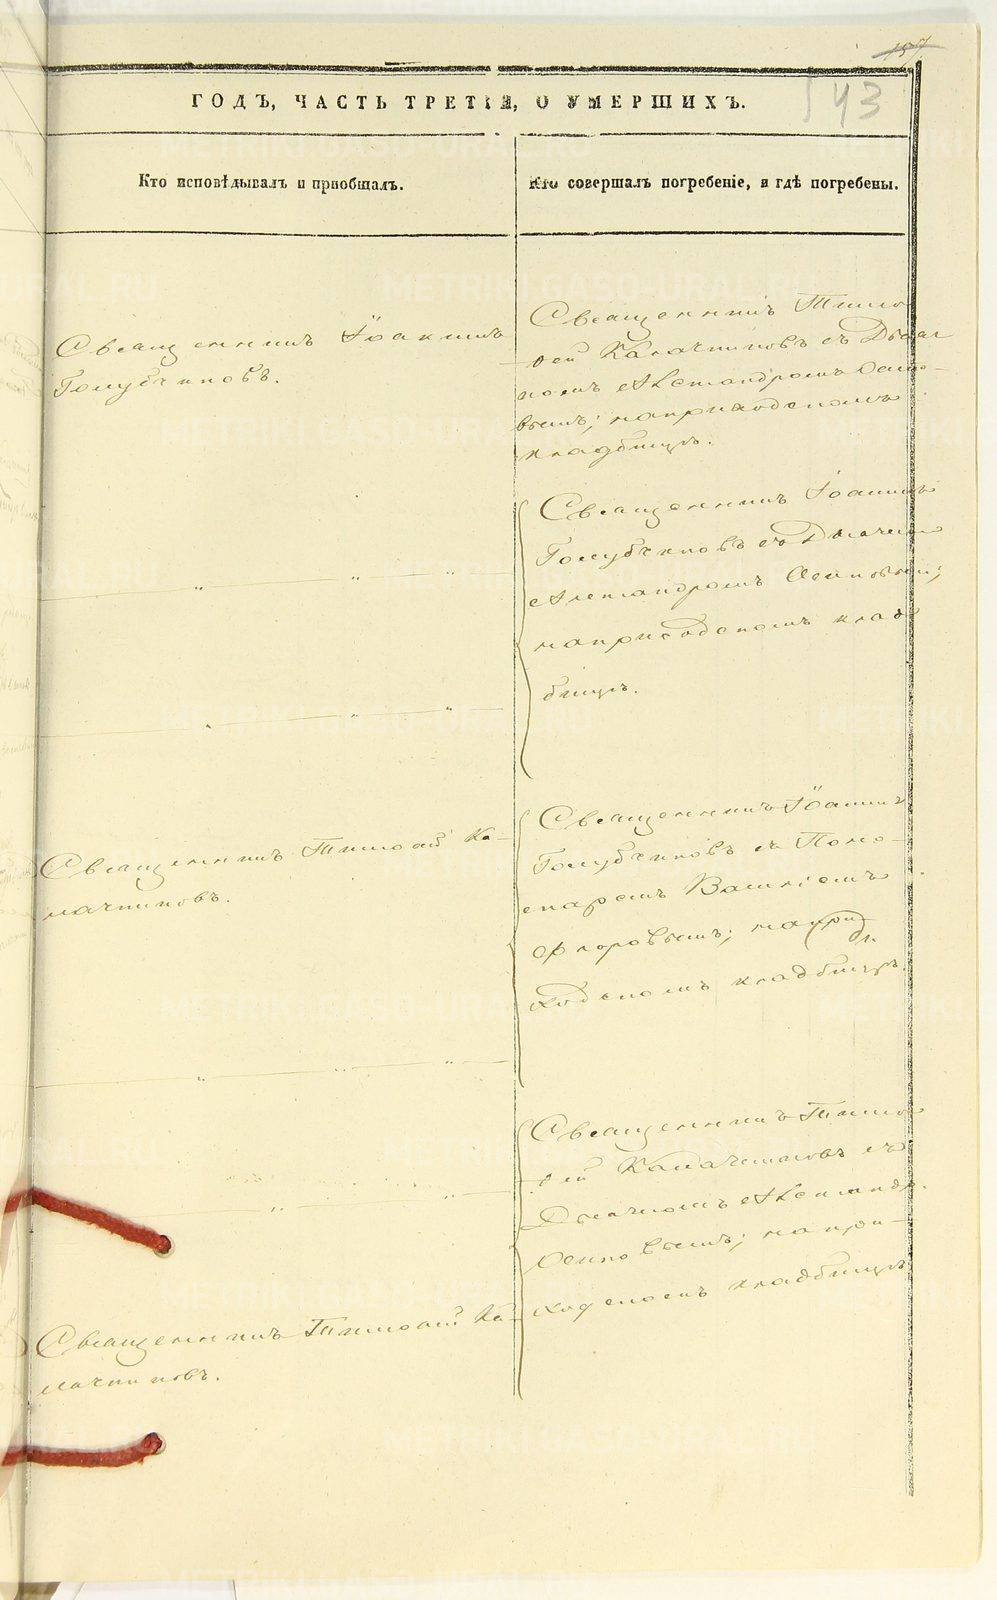 157
43
ГОДЪ, ЧАСТЬ ТРЕТІЯ, О УМЕРШИХЪ.
Кто исповѣдывалъ и пріобщалъ.
Кто совершалъ погребеніе, и гдѣ погребены.
Священникъ Іоаннъ
Голубчиковъ.
Священникъ Тимо-
ѳей Калачниковъ съ Дьяч
комъ Александромъ Осипо-
вымъ; на приходскомъ
кладбищѣ.
Священникъ Іоаннъ
Голубчиковъ съ Дьячкомъ
Александромъ Осиповым;
на приходскомъ клад
бищѣ.
Священникъ Тимоѳей Ка-
лачниковъ.
Священникъ Іоаннъ
Голубчиковъ съ Поно-
маремъ
на при-
ходскомъ кладбищѣ.
Священникъ Тимо
ѳей Калачниковъ съ
Дьячкомъ Александр.
Осиповымъ; на при-
ходскомъ кладбищѣ
Священникъ Тимоѳей Ка-
лачниковъ.
METRIKI.GASO-URAL.RU